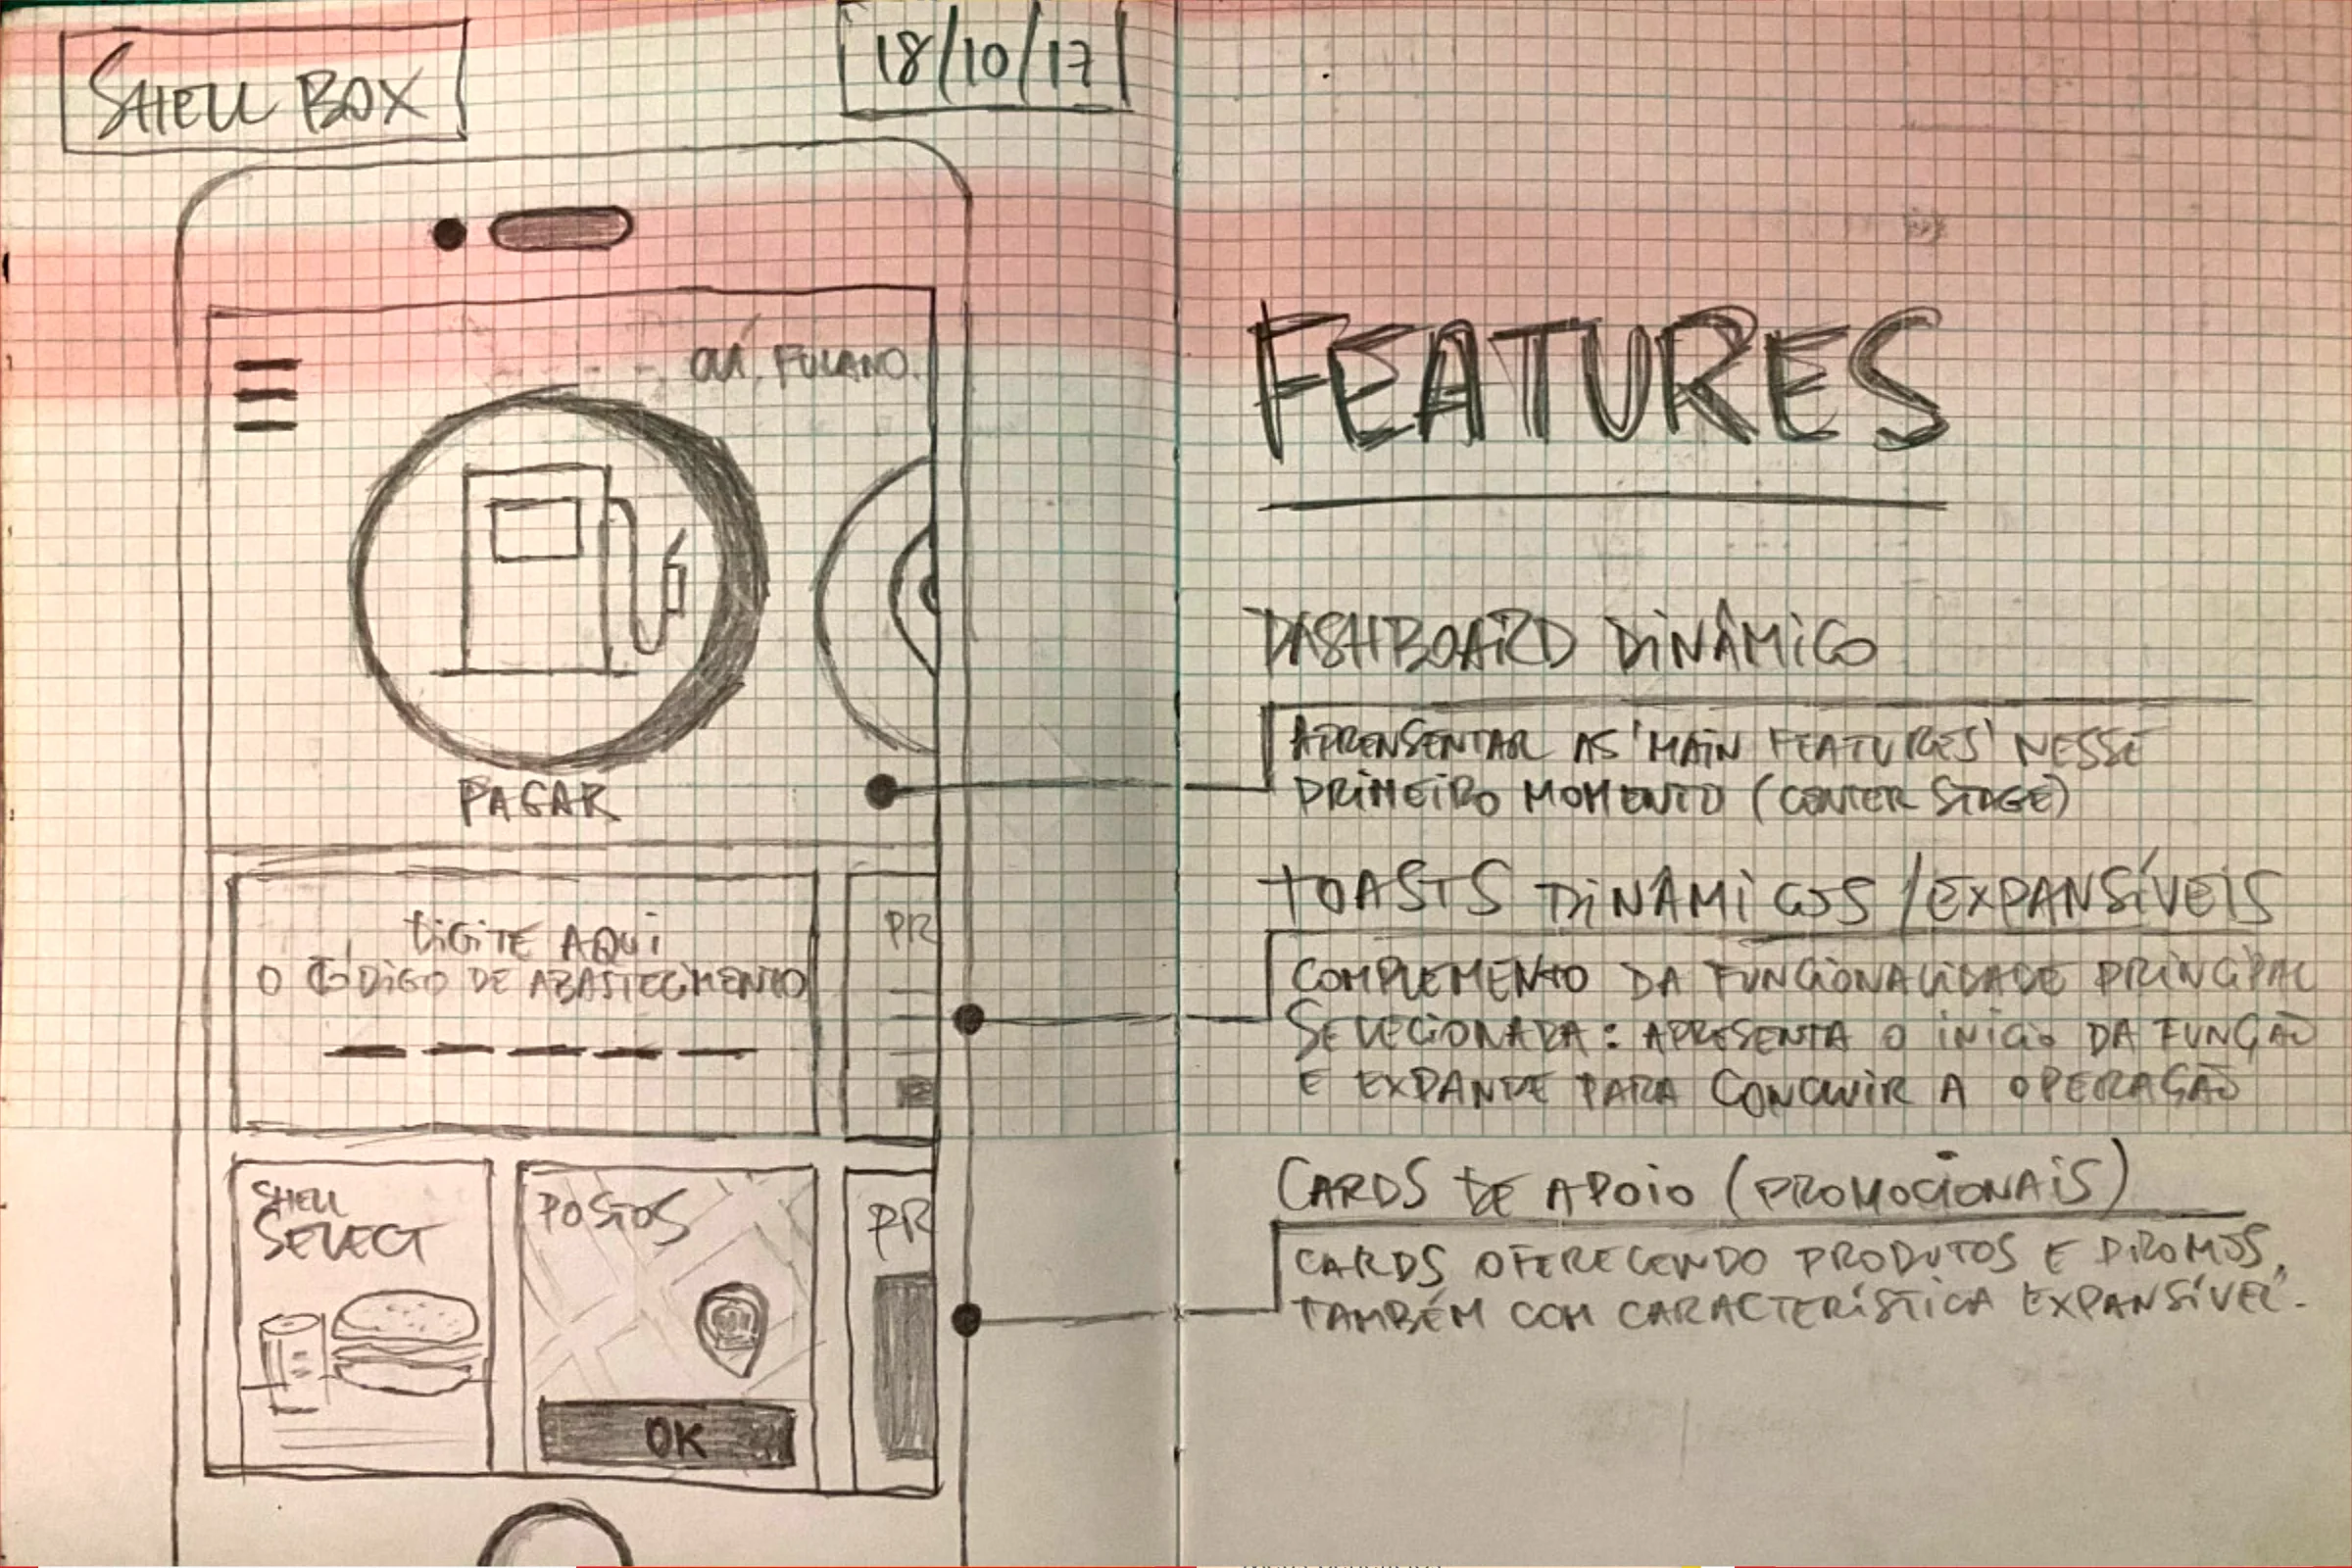 SHELL BOX
18/10/17
OLÁ, FULANO.
PAGAR
DIGITE AQUI
O CÓDIGO DE ABASTECIMENTO
PR
SHELL
SELECT
POSTOS
OK
PR
FEATURES
DASHBOARD DINÂMICO
APRENSENTAR AS 'MAIN FEATURES' NESSE
PRIMEIRO MOMENTO (CENTER STAGE)
TOASTS DINÂMICOS / EXPANSÍVEIS
COMPLEMENTO DA FUNCIONALIDADE PRINCIPAL
SELECIONADA: APRESENTA O INÍCIO DA FUNÇÃO
E EXPANDE PARA CONCLUIR A OPERAÇÃO
CARDS DE APOIO (PROMOCIONAIS)
CARDS OFERECENDO PRODUTOS E PROMOS,
TAMBÉM COM CARACTERÍSTICA EXPANSÍVEL.